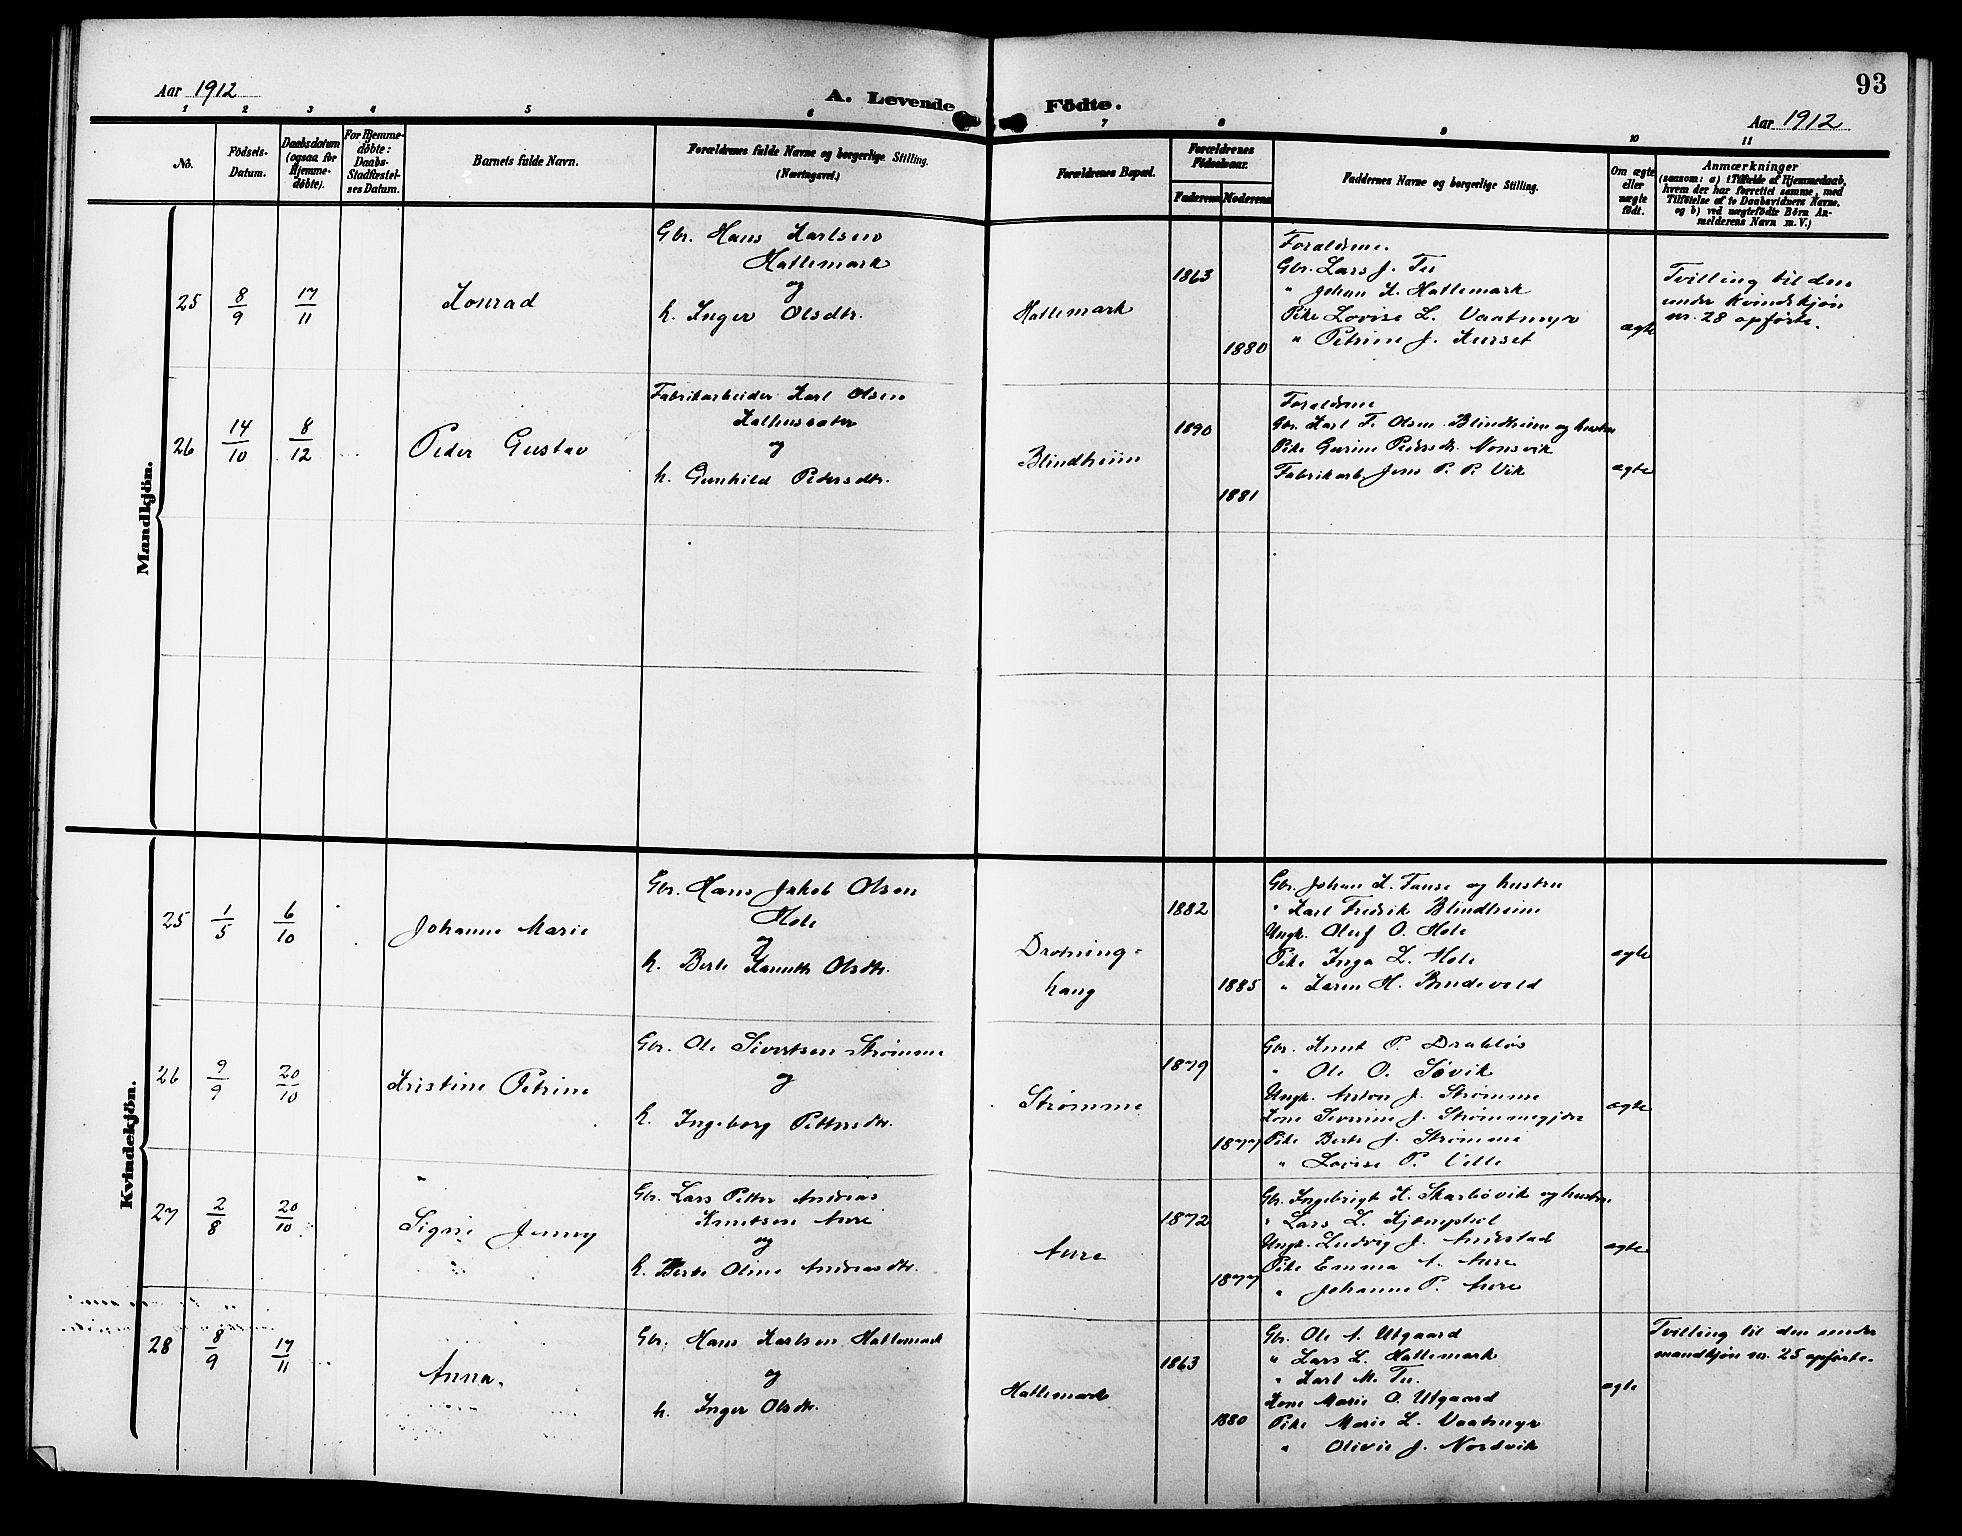 Aar 1912
A. Levende Födte.
93
Aar 1912
1 2 3 4 5 6 7 8 9 10 11
No.
Födsels-Datum.
Daabsdatum (ogsaa for Hjemmedøbte).
For Hjemmedøbte: Daabs-Stadfæstelses Datum.
Barnets fulde Navn.
Forældrenes fulde Navne og borgerlige Stilling.
(Næringsvei.)
Forældrenes Bopæl.
Forældrenes Födselsaar.
Faderens Moderens
Faddernes Navne og borgerlige Stilling.
Om ægte eller uægte födt.
Anmærkninger
(saasom: a) i Tilfælde af Hjemmedaab,
hvem der har forrettet samme, med
Tilföielse af to Daabsvidners Navne.
og b) ved uægtefödte Börn An-
melderens Navn m. V.)
Mandkjön.
25 8/9 17/11 Konrad
Gbr. Hans Karlsen
Hattemark
og
h. Inger Olsdtr.
Hattemark
1863
1880
Forældrene.
Gbr. Lars J. Tu
" Johan K. Hattemark
Pike Lovise L. Vaatmyr
" Petrine J. Kurset
ægte
Tvilling til den
under Kvindekjøn
nr. 28 opførte.
26 14/10 8/12 Peder Gustav
Fabrikarbeider Karl Olsen
og
h. Gunhild Pedersdtr.
Blindheim
1890
1881
Forældrene
Gbr. Karl F. Olsen Blindheim og hustru
Pike Gurine Pedersdtr. Nonsvik
Fabrikarb. Jens P. P. Vik
ægte
Kvindekjön.
25 1/5 6/10 Johanne Marie
Gbr. Hans Jakob Olsen
Hole
og
h. Berte Olsdtr.
Drotning-
haug
1882
1885
Gbr. Johan K. og hustru
" Karl Fredrik Blindheim
Ungk. Oluf O. Hole
Pike Inga L. Hole
" Karen H.
ægte
26 9/9 20/10 Kristine Petrine
Gbr. Ole Sivertsen Strømme
og
h. Ingeborg Pettersdtr.
Strømme
1879
1877
Gbr. Knut P. Drabløs
" Ole O. Søvik
Ungk. Anton J. Strømme
Kone Severine J. Strømmegjære
Pike Berte J. Strømme
" Lovise P. Velle
ægte
27 2/8 20/10 Signe Jenny
Gbr. Lars Petter Andreas
Knutsen Aure
og
h. Berte Oline Andreasdtr.
Aure
1872
1877
Gbr. Ingebrigt K. Skarbøvik og hustru
" Lars L.
Ungk. Ludvig J. Andestad
Pike Emma A. Aure
" Johanne P. Aure
ægte
28 8/9 17/11 Anna.
Gbr. Hans Karlsen Hattemark
og
h. Inger Olsdtr.
Hattemark
1863
1880
Gbr. Ole A. Utgaard
" Lars L. Hattemark
" Karl M. Tu.
Kone Marie O. Utgaard
Pike Marie L. Vaatmyr
" Olivie J. Nordvik
ægte
Tvilling til den under
mandkjøn nr. 25 opførte.